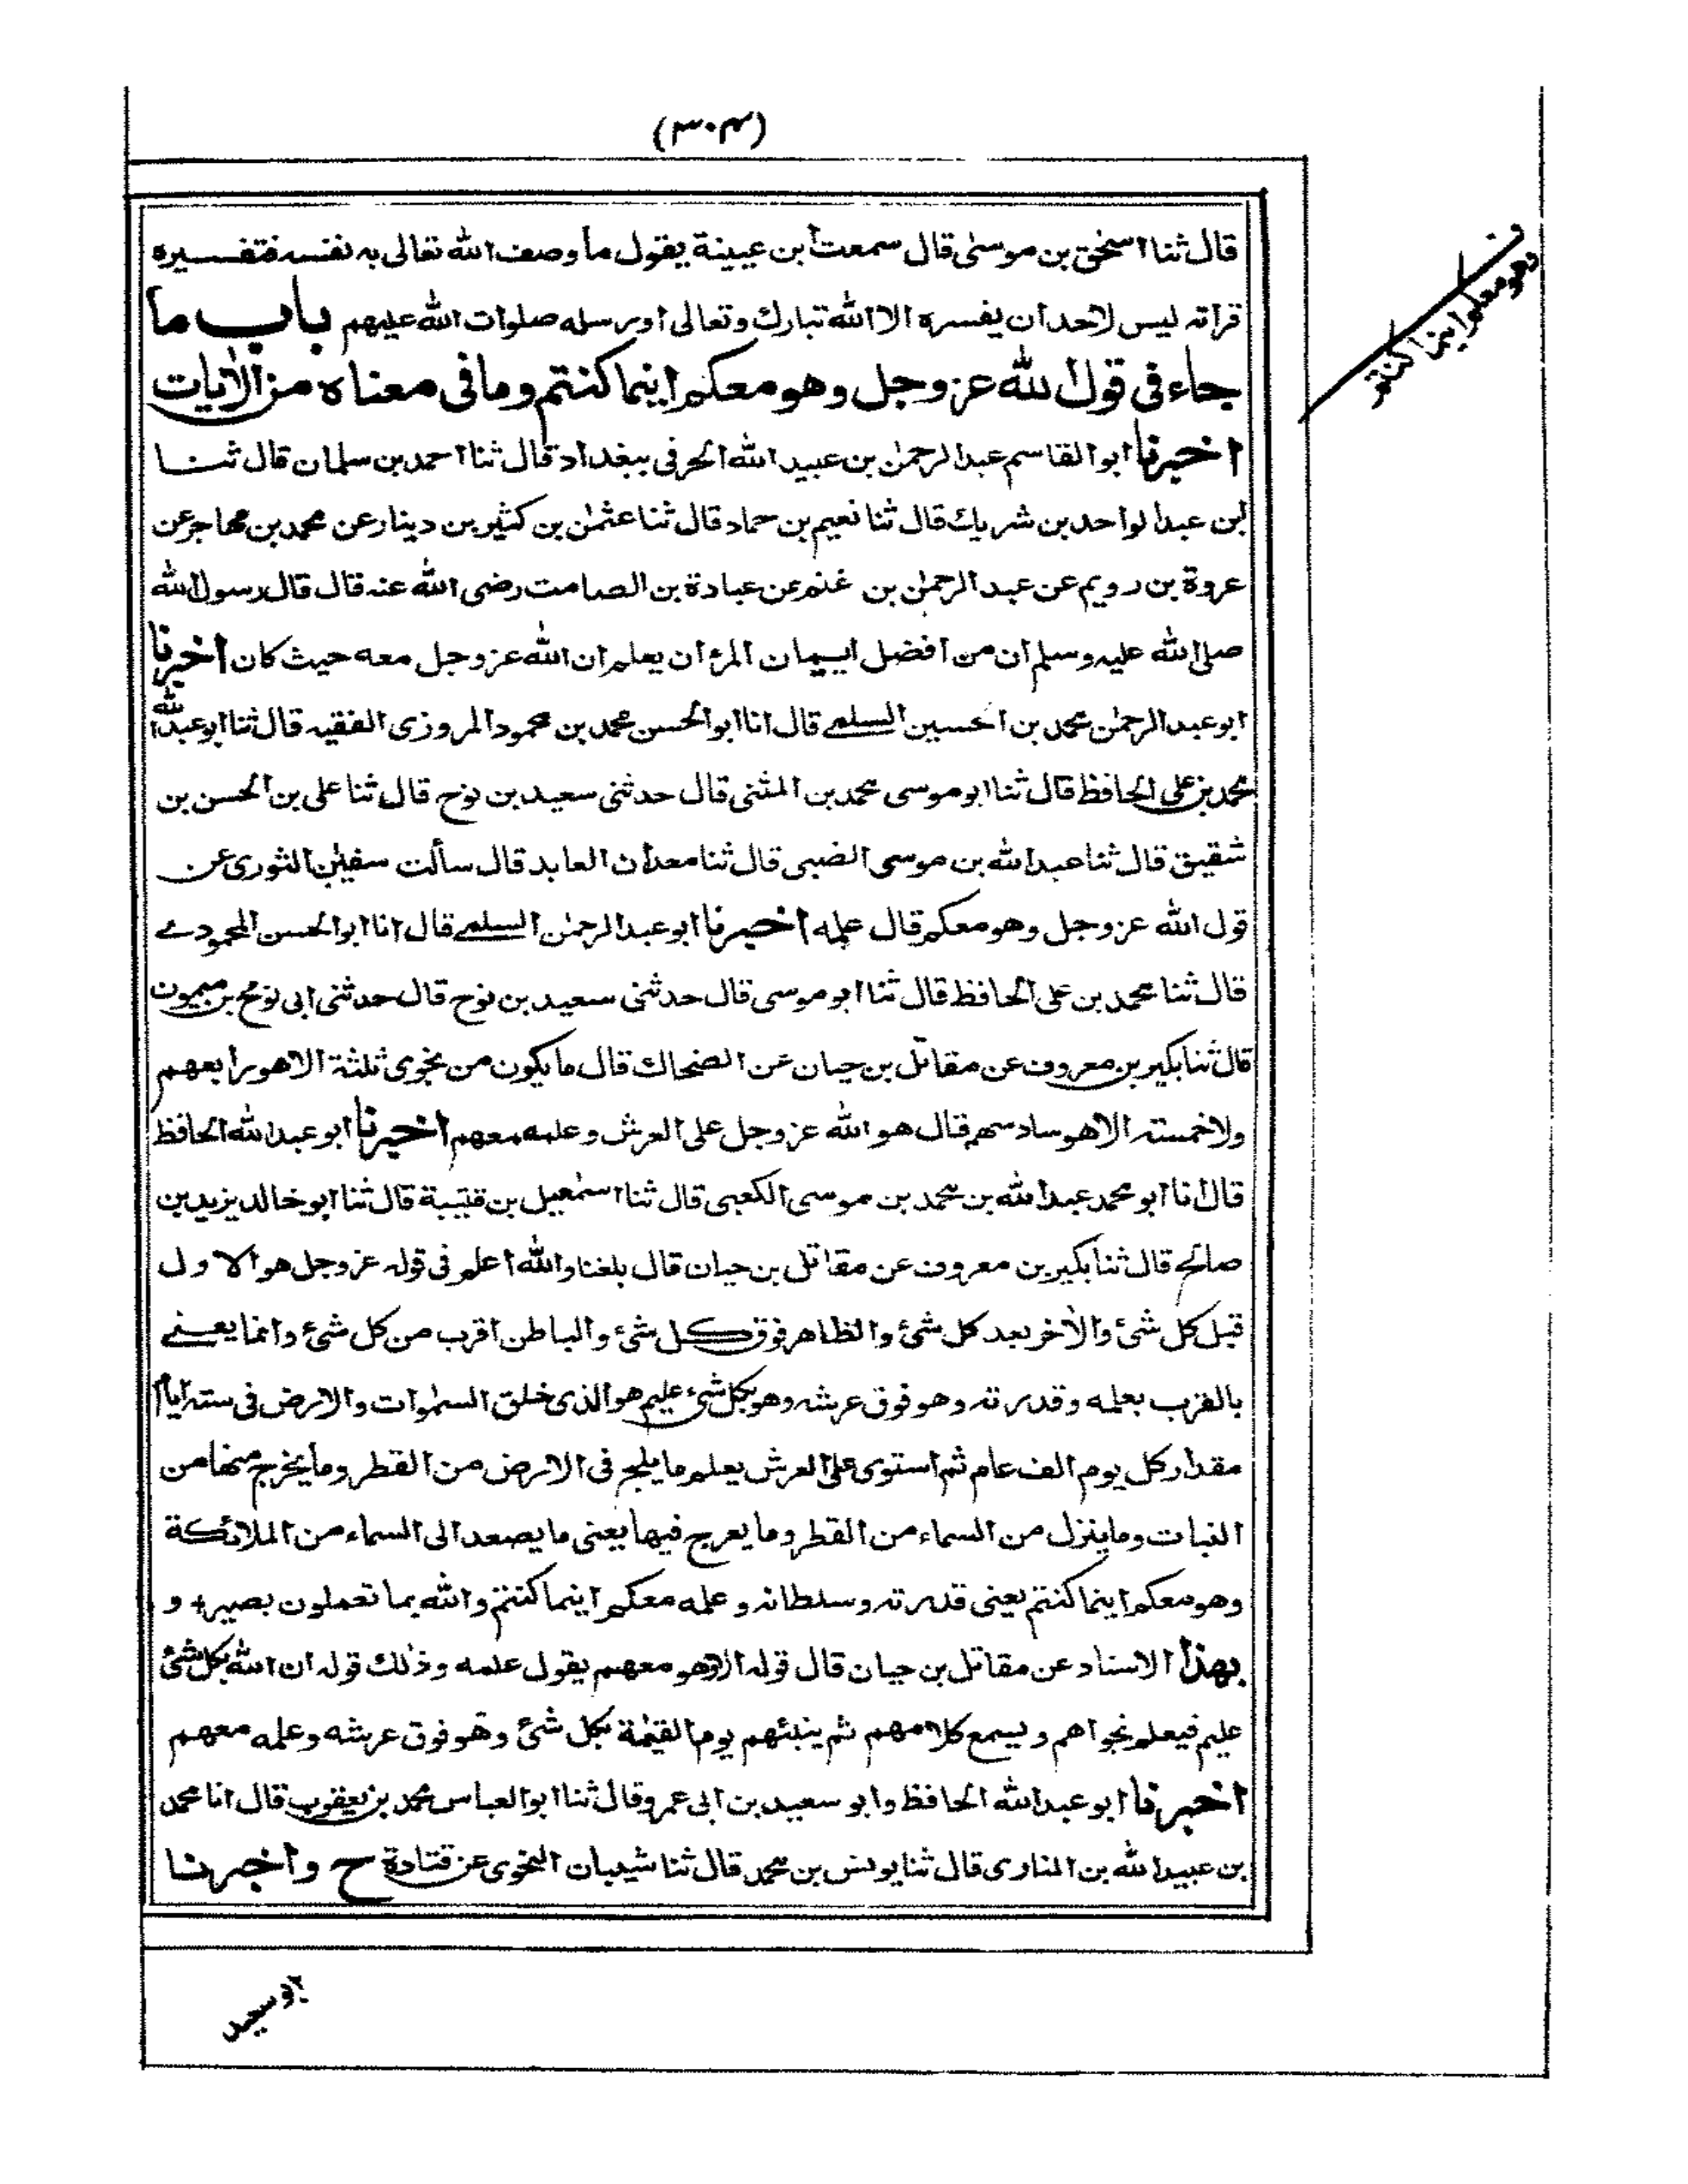 (٣٠٣)
قال ثنا اسحٰق بن موسىٰ قال سمعت ابن عيينة يقول ما وصف الله تعالى به نفسه فتفسيره
قراته ليس لاحد ان يفسره الا الله تبارك وتعالى او رسله صلوات الله عليهم باب ما
جاء في قول الله عز وجل وهو معكم اينما كنتم وما في معناه من الاٰيات
اخبرنا ابو القاسم عبد الرحمٰن بن عبيد الله الحرفي ببغداد قال ثنا احمد بن سلمان قال ثنا
ابن عبد الواحد بن شريك قال ثنا نعيم بن حماد قال ثنا عثمٰن بن كثير بن دينار عن محمد بن مهاجر عن
عروة بن رويم عن عبد الرحمٰن بن غنم عن عبادة بن الصامت رضى الله عنه قال قال رسول الله
صلى الله عليه وسلم ان من افضل ايمان المرء ان يعلم ان الله عز وجل معه حيث كان اخبرنا
ابو عبد الرحمٰن محمد بن الحسين السلمى قال انا ابو الحسن محمد بن محمود المروزى الفقيه قال ثنا ابو عبد الله
محمد بن على الحافظ قال ثنا ابو موسى محمد بن المثنى قال حدثنى سعيد بن نوح قال ثنا على بن الحسن بن
شقيق قال ثنا عبد الله بن موسى الضبى قال ثنا معدان العابد قال سألت سفيٰن الثورى عن
قول الله عز وجل وهو معكم قال علمه اخبرنا ابو عبد الرحمٰن السلمى قال انا ابو الحسن المحمودے
قال ثنا محمد بن على الحافظ قال ثنا ابو موسى قال حدثنى سعيد بن نوح قال حدثنى ابى نوح بن ميمون
قال ثنا بكير بن معروف عن مقاتل بن حيان عن الضحاك قال ما يكون من نجوى ثلثة الا هو رابعهم
ولا خمسة الا هو سادسهم قال هو الله عز وجل على العرش وعلمه معهم اخبرنا ابو عبد الله الحافظ
قال انا ابو محمد عبد الله بن محمد بن موسى الكعبى قال ثنا اسمٰعيل بن قتيبة قال ثنا ابو خالد يزيد بن
صالح قال ثنا بكير بن معروف عن مقاتل بن حيان قال بلغنا والله اعلم فى قوله عز وجل هو الاول
قبل كل شئ والاٰخر بعد كل شئ والظاهر فوق كل شئ والباطن اقرب من كل شئ وانما يعنے
بالقرب بعلمه وقدرته وهو فوق عرشه وهو بكل شئ عليم هو الذى خلق السمٰوات والارض فى ستة ايام
مقدار كل يوم الف عام ثم استوى على العرش يعلم ما يلج فى الارض من القطر وما يخرج منها من
النبات وما ينزل من السماء من القطر وما يعرج فيها يعنى ما يصعد الى السماء من الملائكة
وهو معكم اينما كنتم يعنى قدرته وسلطانه وعلمه معكم اينما كنتم والله بما تعملون بصير + و
بهذا الاسناد عن مقاتل بن حيان قال قوله الا هو معهم يقول علمه وذٰلك قوله ان الله بكل شئ
عليم فيعلم نجواهم ويسمع كلامهم ثم ينبئهم يوم القيٰمة بكل شئ وهو فوق عرشه وعلمه معهم
اخبرنا ابو عبد الله الحافظ وابو سعيد بن ابى عمرو قال ثنا ابو العباس محمد بن يعقوب قال انا محمد
بن عبيد الله بن المنادى قال ثنا يونس بن محمد قال ثنا شيبان النحوى عن قتادة ح واخبرنا